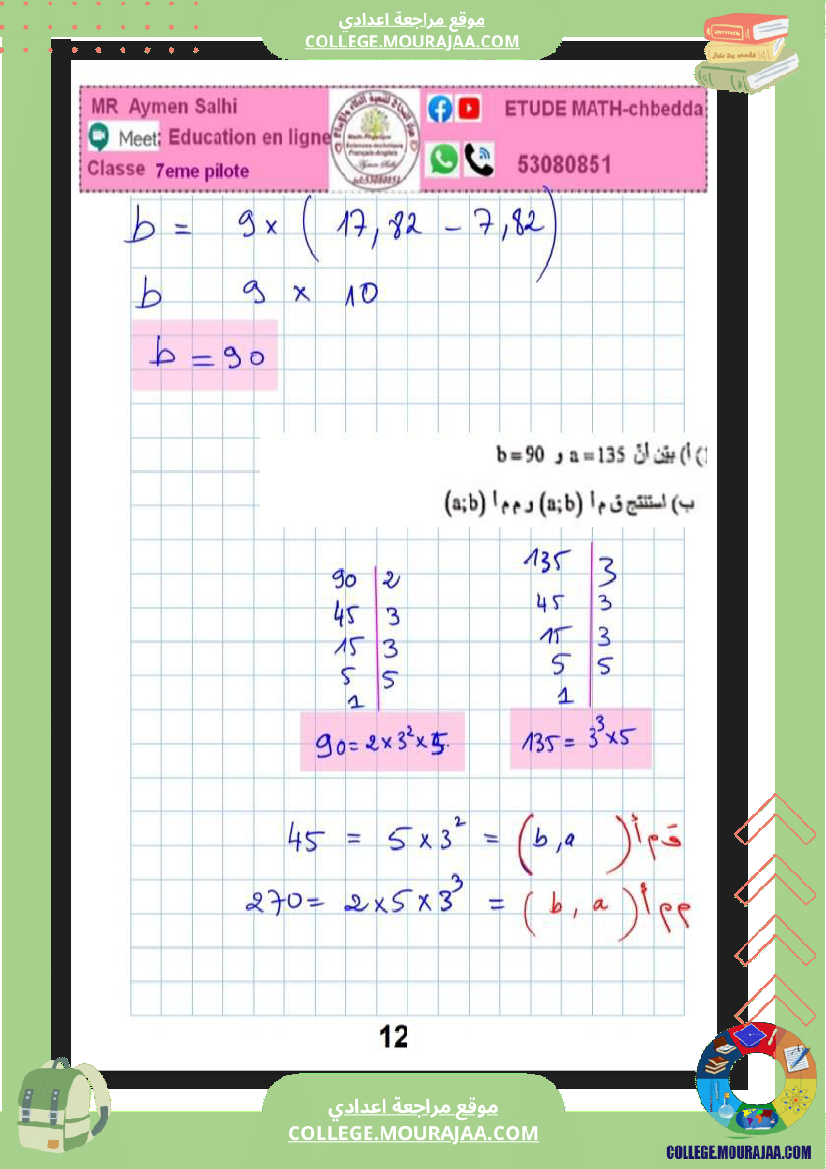 موقع مراجعة اعدادي
COLLEGE.MOURAJAA.COM
MR Aymen Salhi
ETUDE MATH-chbedda
Meet: Education en ligne
Classe 7eme pilote
53080851
b = 9 × ( 17,82 - 7,82 )
b 9 × 10
b = 90
1) أ) بيّن أنّ a = 135 و b = 90
ب) استنتج ق م أ (a;b) و م م أ (a;b)
90 | 2
45 | 3
15 | 3
5 | 5
1
90 = 2 × 3² × 5.
135 | 3
45 | 3
15 | 3
5 | 5
1
135 = 3³ × 5
45 = 5 × 3² = (b, a) ق م أ
270 = 2 × 5 × 3³ = (b, a) م م أ
12
موقع مراجعة اعدادي
COLLEGE.MOURAJAA.COM
COLLEGE.MOURAJAA.COM